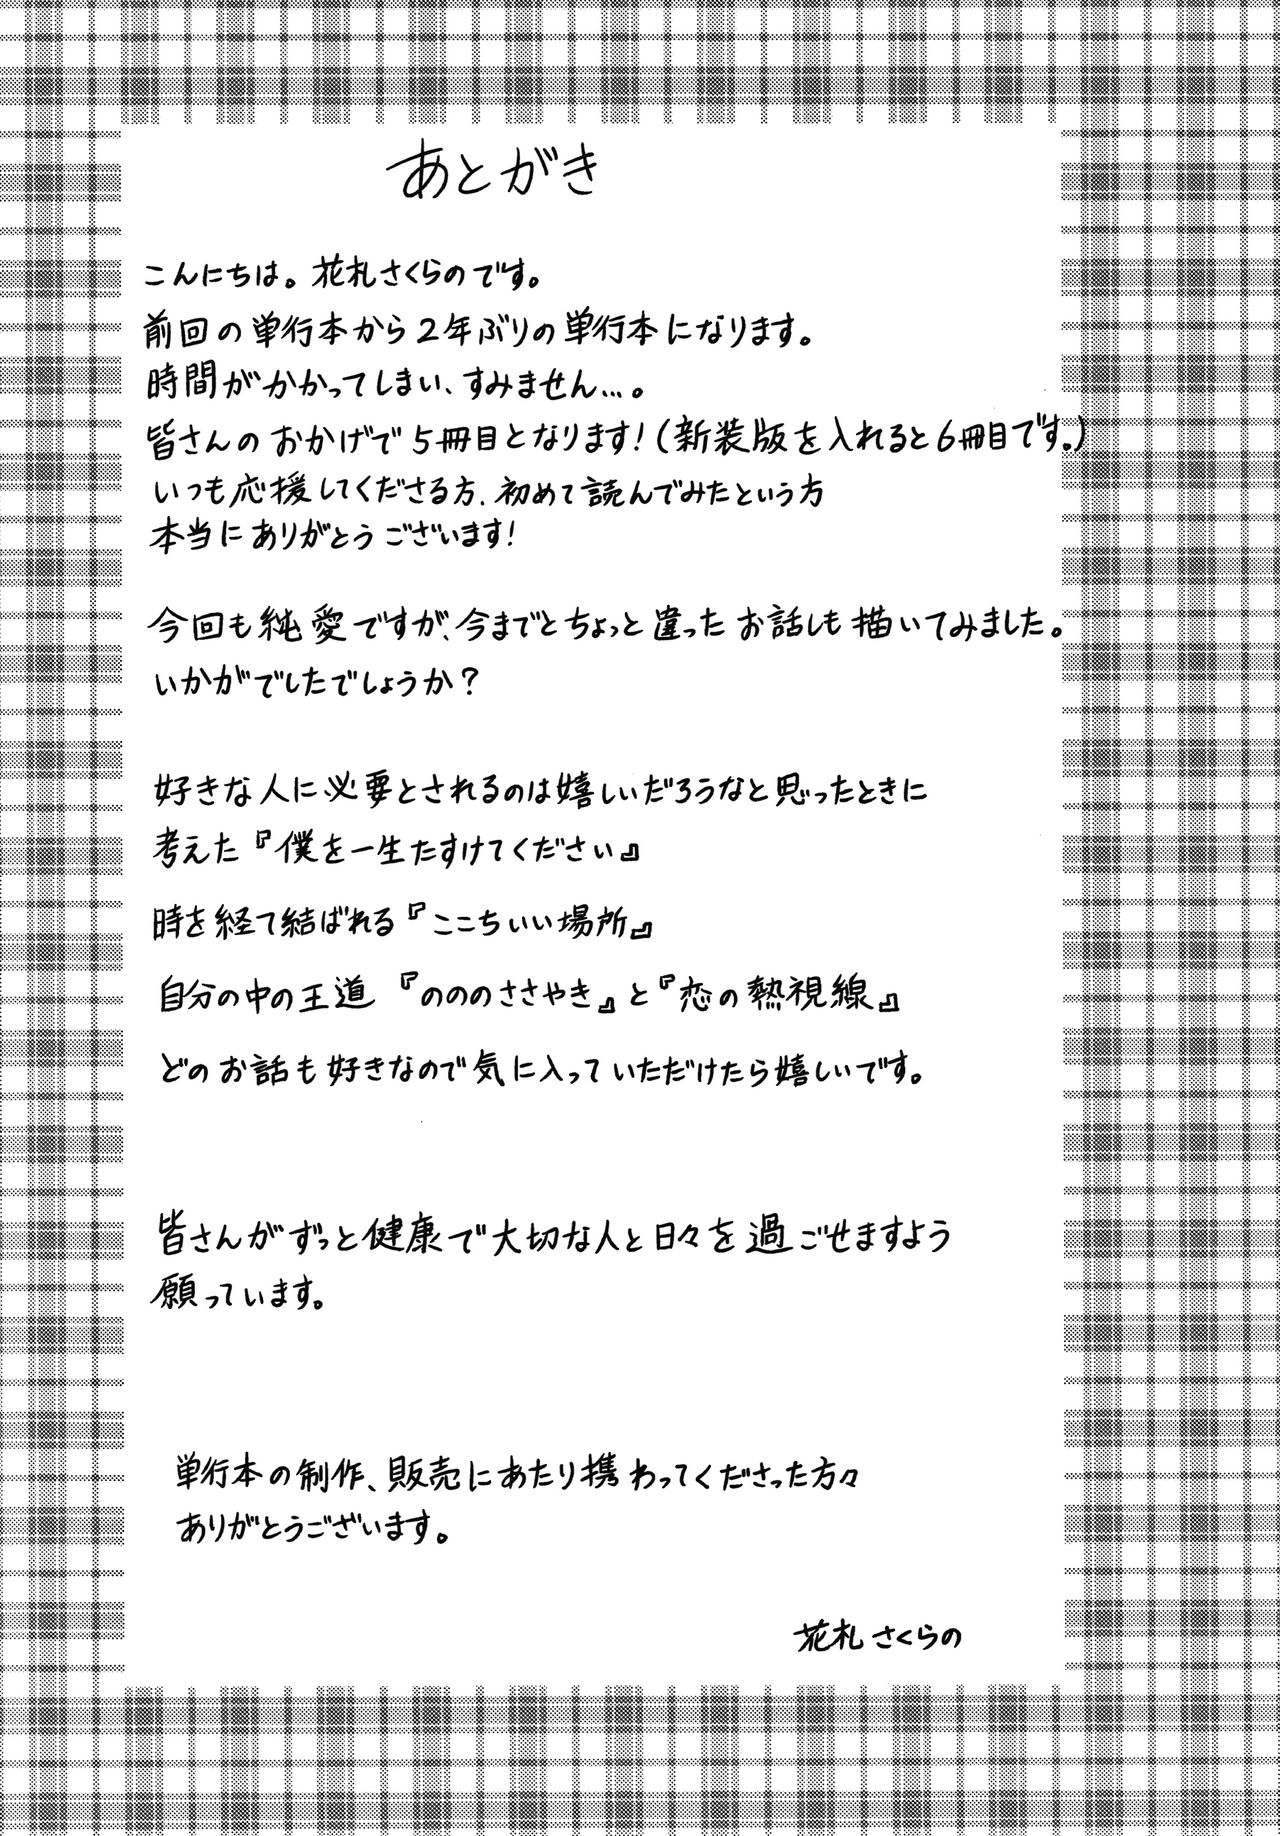 あとがき
こんにちは。花札さくらのです。
前回の単行本から2年ぶりの単行本になります。
時間がかかってしまい、すみません…。
皆さんのおかげで5冊目となります！(新装版を入れると6冊目です。)
いつも応援してくださる方、初めて読んでみたという方
本当にありがとうございます！
今回も純愛ですが、今までとちょっと違ったお話しも描いてみました。
いかがでしたでしょうか？
好きな人に必要とされるのは嬉しいだろうなと思ったときに
考えた『僕を一生たすけてください』
時を経て結ばれる『ここちいい場所』
自分の中の王道『のののささやき』と『恋の熱視線』
どのお話も好きなので気に入っていただけたら嬉しいです。
皆さんがずっと健康で大切な人と日々を過ごせますよう
願っています。
単行本の制作、販売にあたり携わってくださった方々
ありがとうございます。
花札さくらの